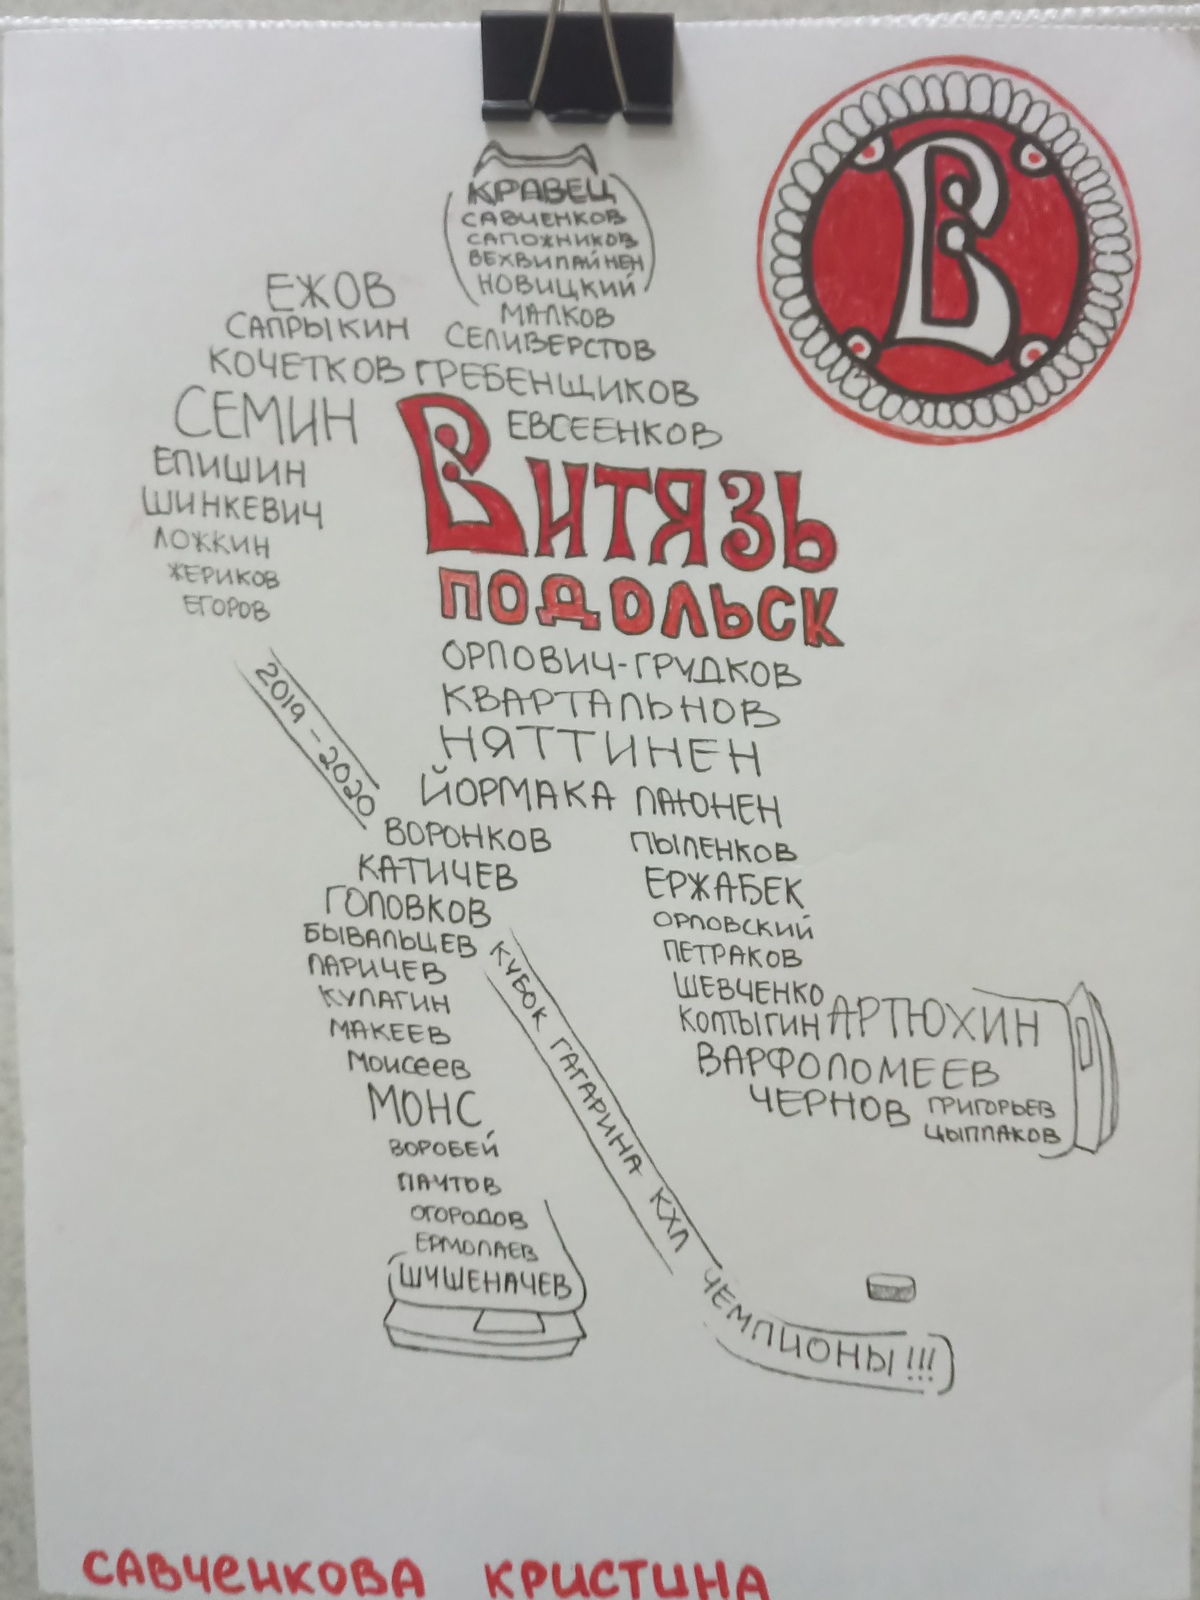 В
КРАВЕЦ
САВЧЕНКОВ
САПОЖНИКОВ
ВЕХВИЛАЙНЕН
НОВИЦКИЙ
МАЛКОВ
СЕЛИВЕРСТОВ
ЕЖОВ
САПРЫКИН
КОЧЕТКОВ ГРЕБЕНЩИКОВ
СЕМИН
ЕВСЕЕНКОВ
ЕПИШИН
ШИНКЕВИЧ
ЛОЖКИН
ЖЕРИКОВ
ЕГОРОВ
ВИТЯЗЬ
ПОДОЛЬСК
ОРЛОВИЧ-ГРУДКОВ
КВАРТАЛЬНОВ
НЯТТИНЕН
ЙОРМАКА ПАЮНЕН
2019-2020
ВОРОНКОВ
КАТИЧЕВ
ГОЛОВКОВ
БЫВАЛЬЦЕВ
ЛАРИЧЕВ
КУЛАГИН
МАКЕЕВ
МОИСЕЕВ
МОНС
ВОРОБЕЙ
ПАЧТОВ
ОГОРОДОВ
ЕРМОЛАЕВ
ШУШЕНАЧЕВ
ПЫЛЕНКОВ
ЕРЖАБЕК
ОРЛОВСКИЙ
ПЕТРАКОВ
ШЕВЧЕНКО
КОЛТЫГИН АРТЮХИН
ВАРФОЛОМЕЕВ
ЧЕРНОВ ГРИГОРЬЕВ
ЦЫПЛАКОВ
КУБОК ГАГАРИНА КХЛ
ЧЕМПИОНЫ!!!
САВЧЕНКОВА КРИСТИНА